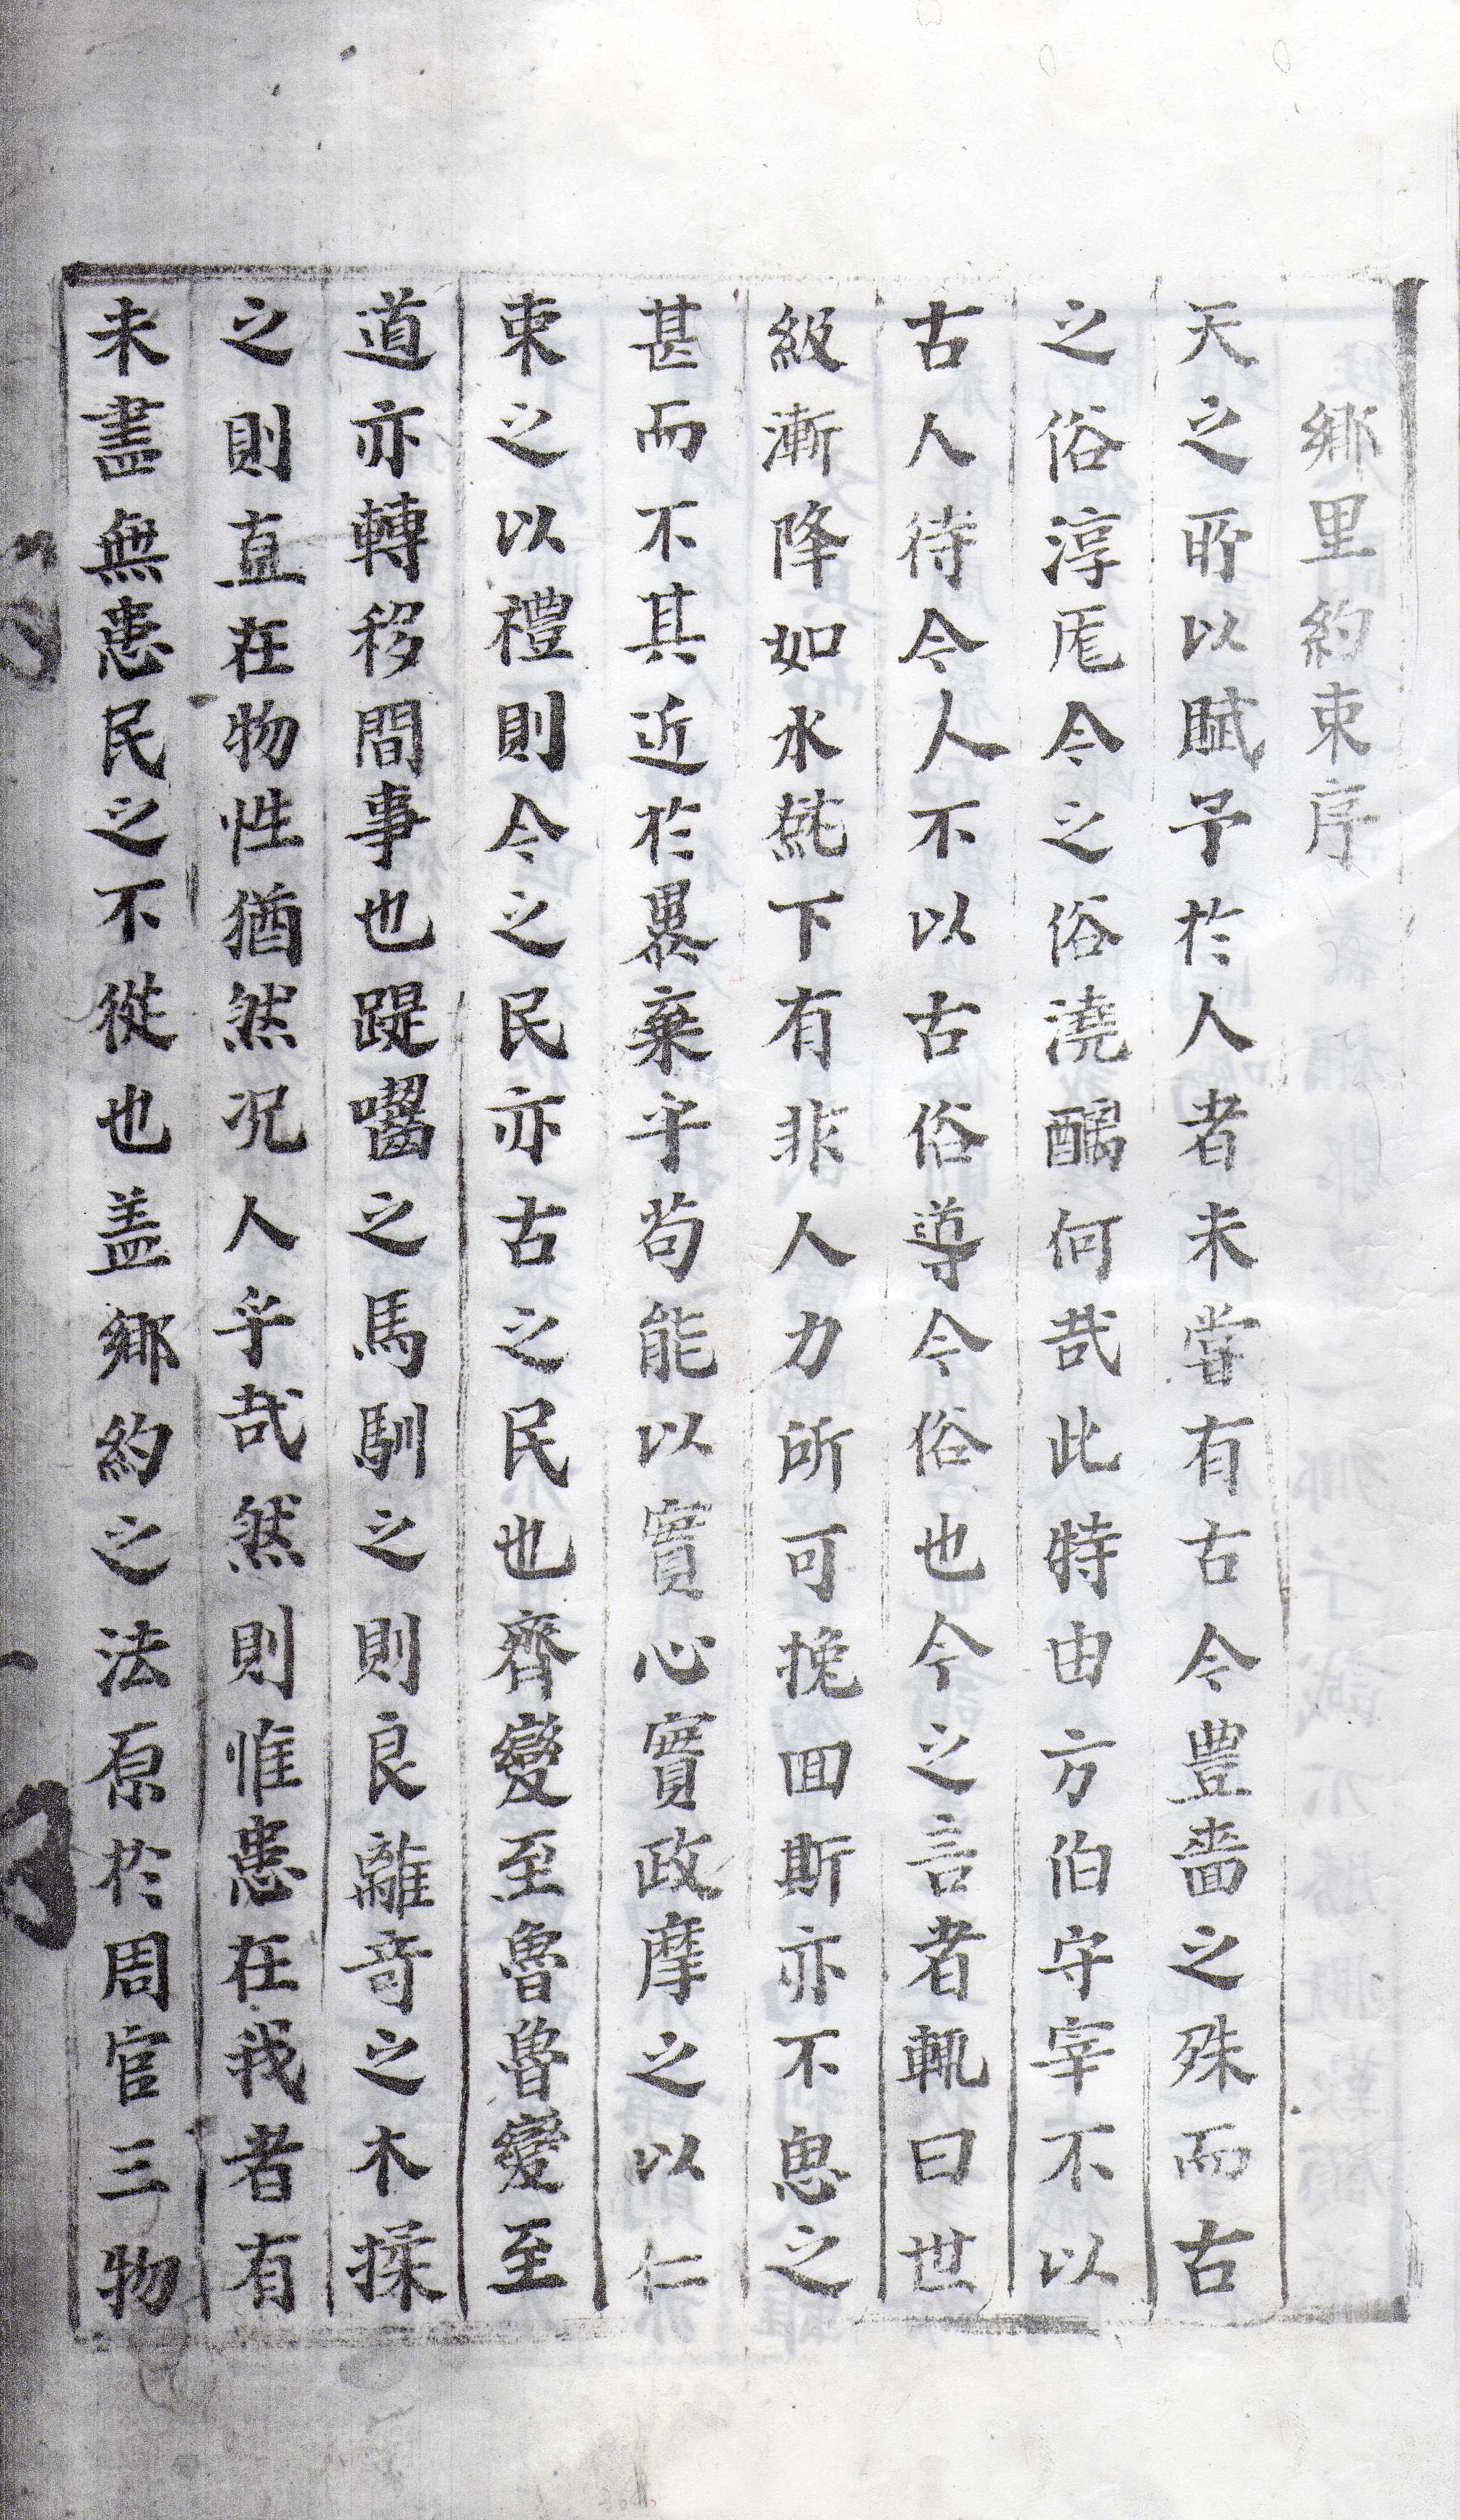 鄉里約束序
天之所以賦予於人者未嘗有古今豊嗇之殊而古
之俗淳厖今之俗澆醨何哉此特由方伯守宰不以
古人待今人不以古俗導今俗也今之言者輒曰世
級漸降如水就下有非人力所可挽回斯亦不思之
甚而不其近於暴棄乎苟能以實心實政摩之以仁
束之以禮則今之民亦古之民也齊變至魯魯變至
道亦轉移間事也踶囓之馬馴之則良離奇之木揉
之則直在物性猶然况人乎哉然則惟患在我者有
未盡無患民之不從也盖鄉約之法原於周官三物